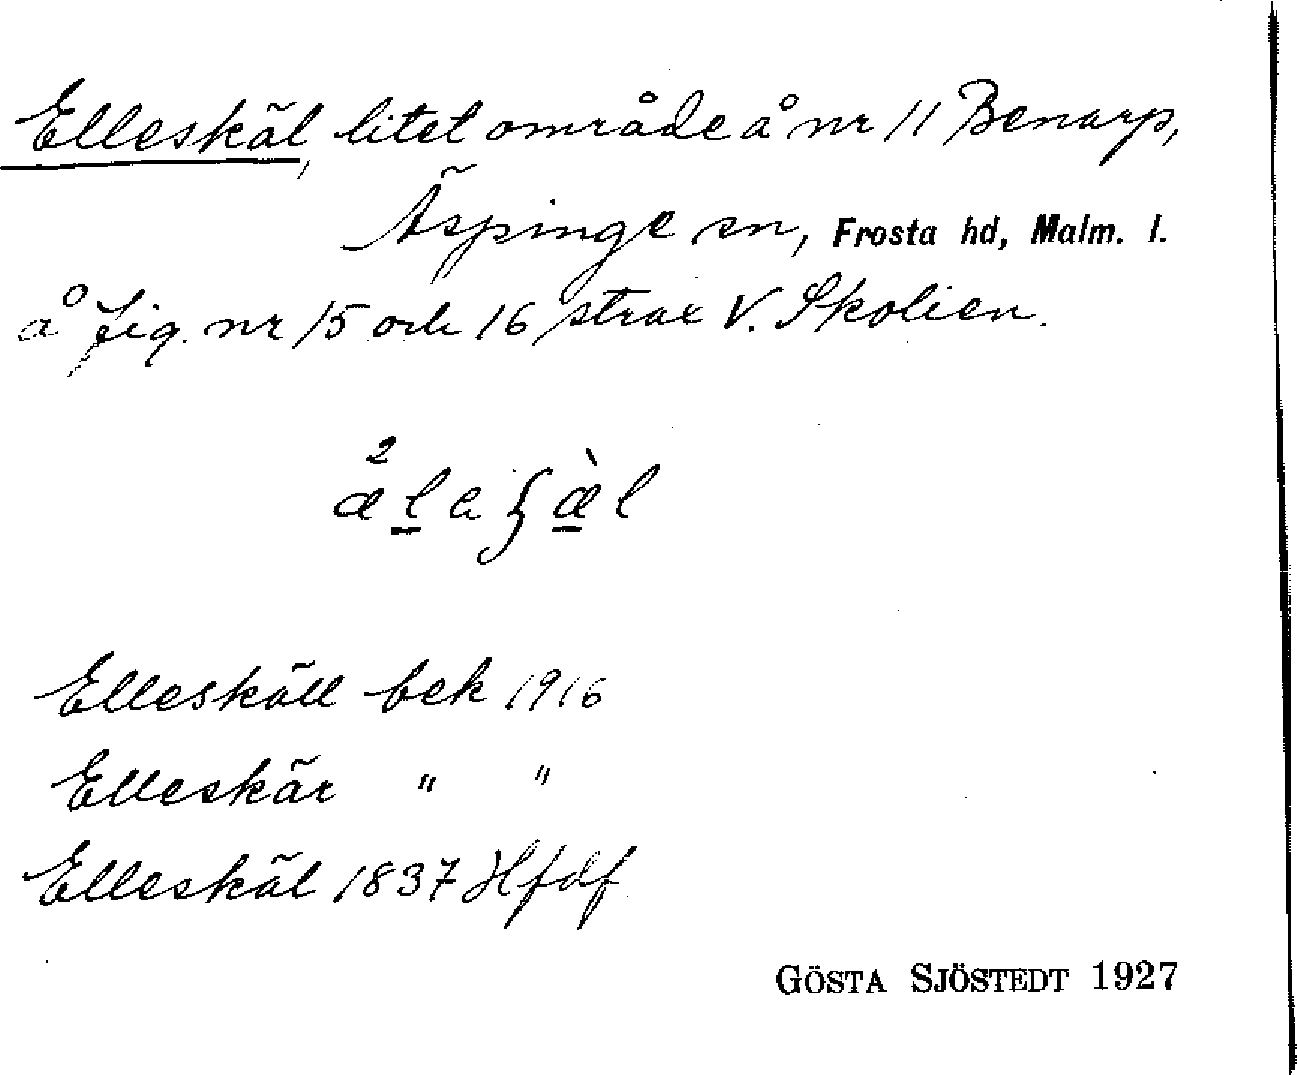 Elleskäl, litet område å nr 11 Benarp,
Äspinge sn, Frosta hd, Malm. l.
å fig. nr 15 och 16 strax V. Skolien.
Elleskäll bek 1916
Elleskär " "
Elleskäl 1837 Hfdf
GÖSTA SJÖSTEDT 1927